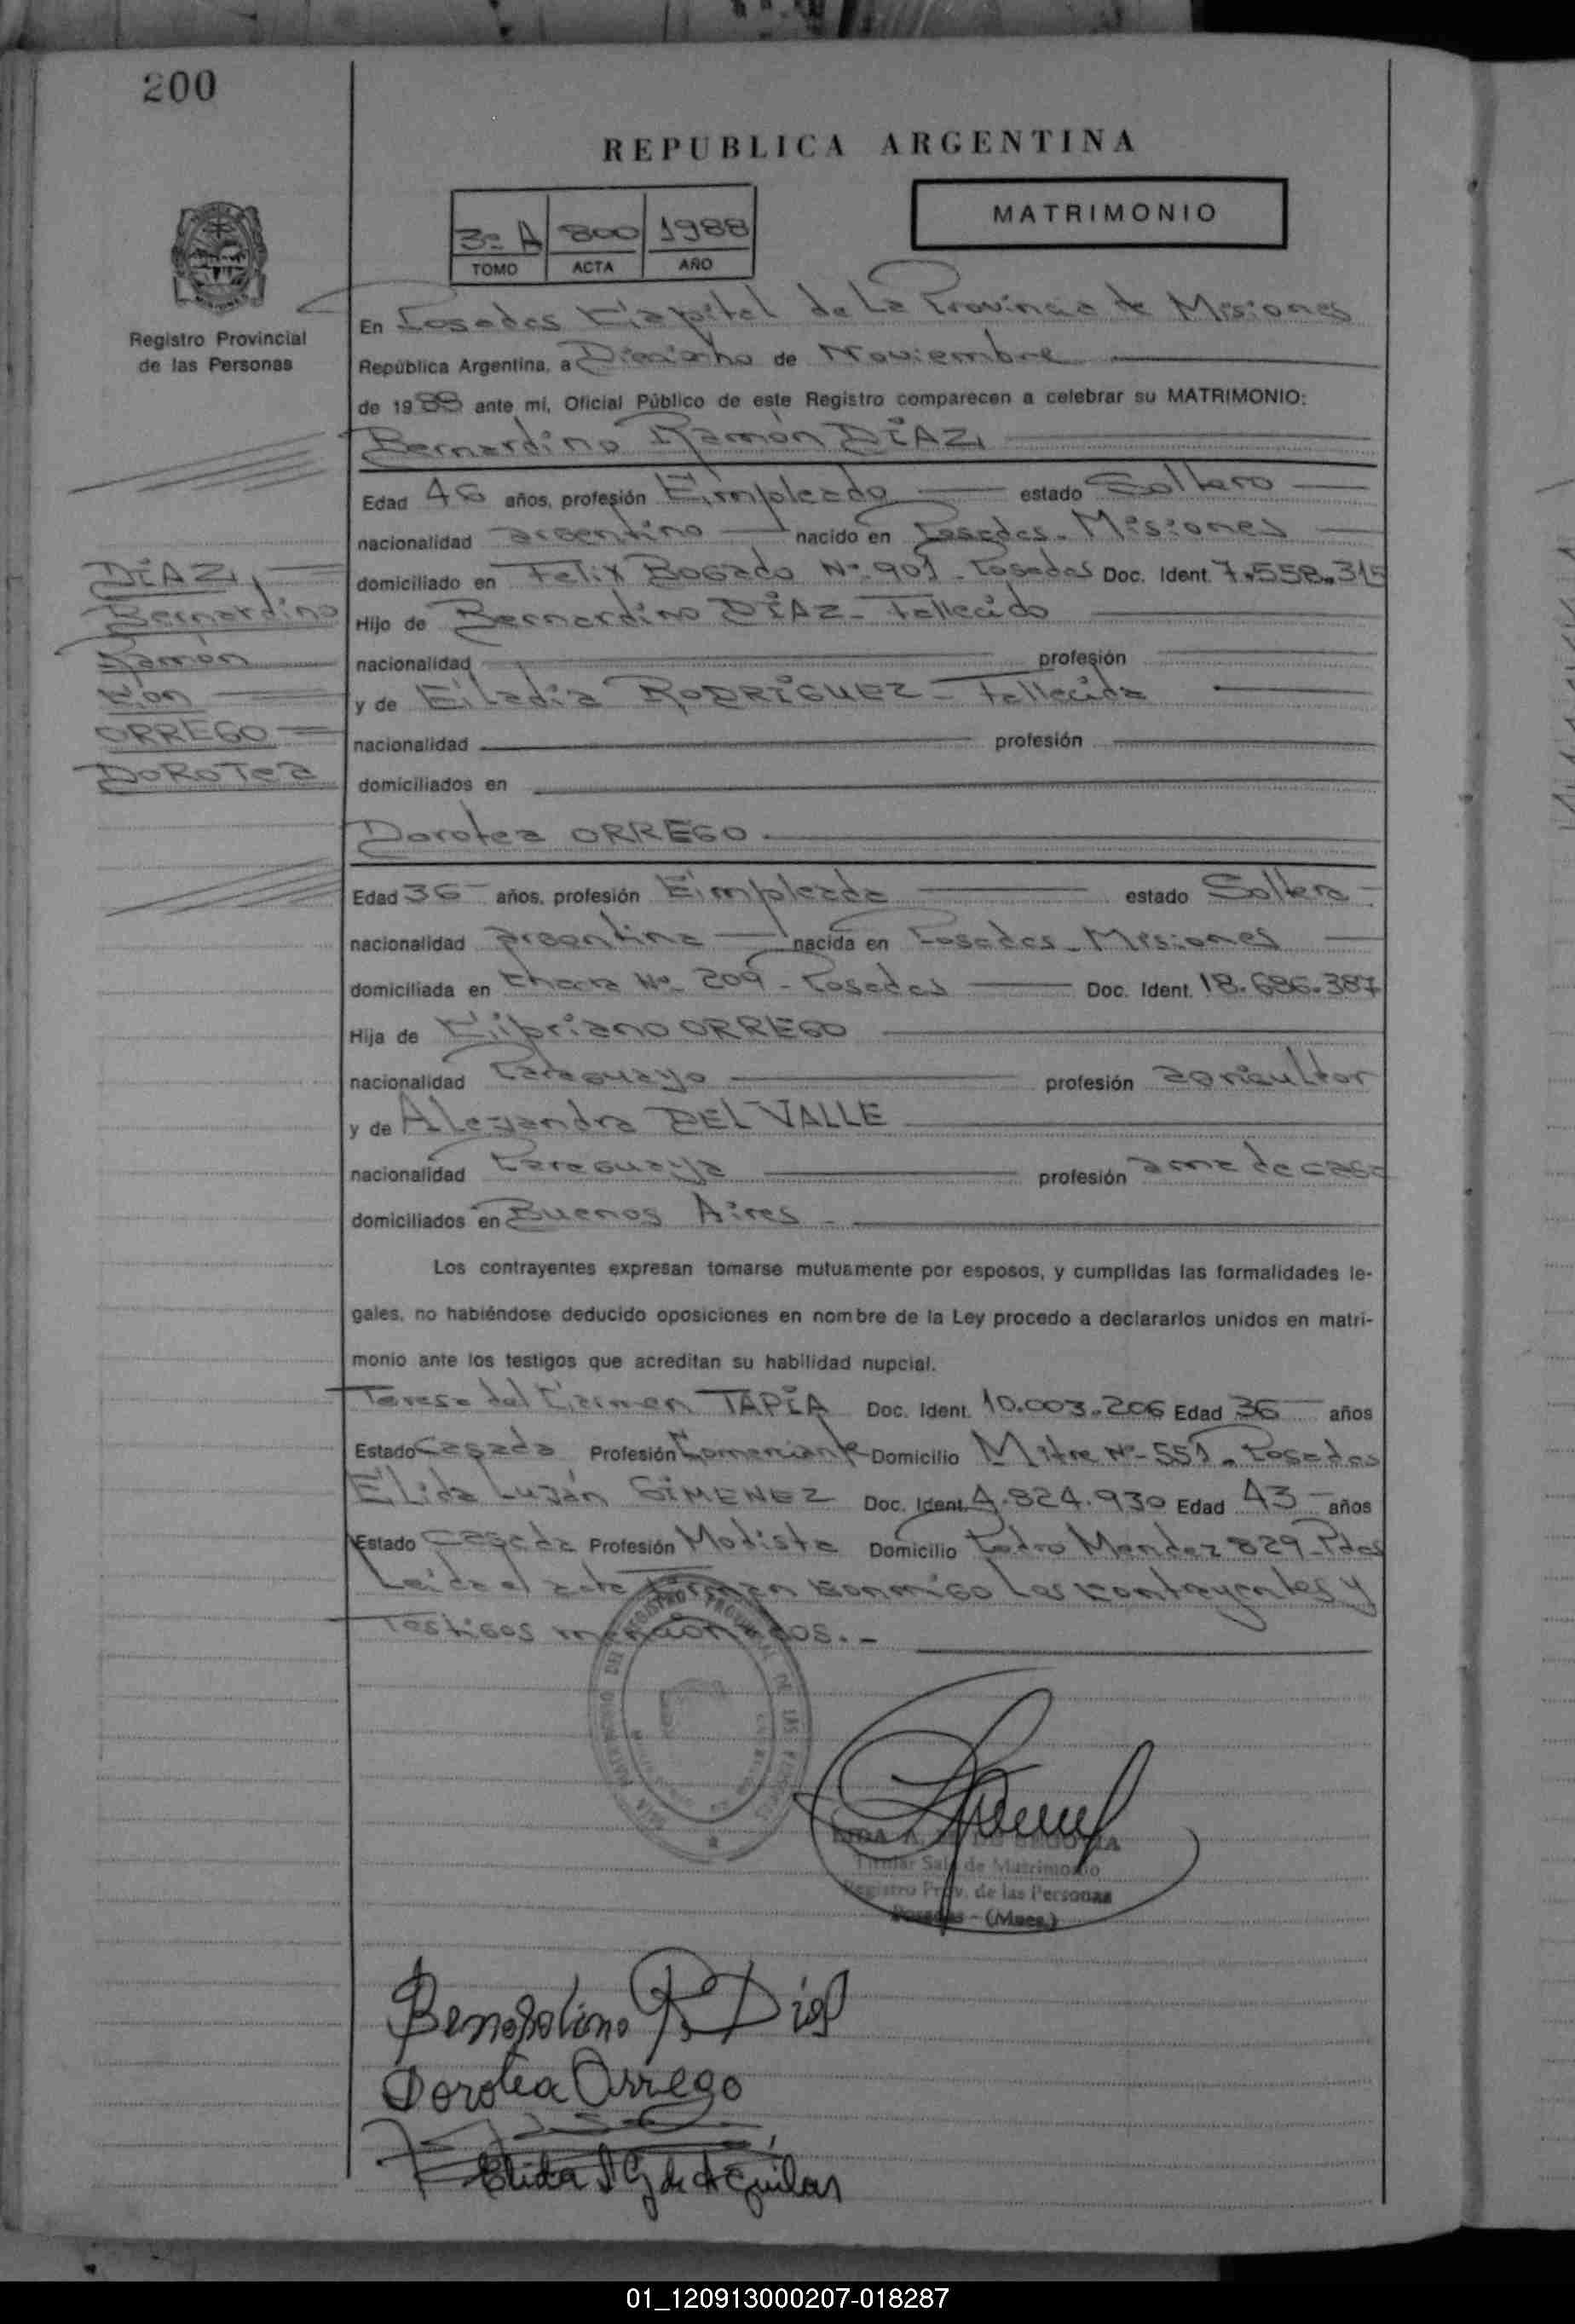 200
REPUBLICA ARGENTINA
MATRIMONIO
3º A 800 1988
TOMO ACTA AÑO
Registro Provincial
de las Personas
En Posadas Capital de La Provincia de Misiones
República Argentina, a Dieciocho de Noviembre
de 1988 ante mí, Oficial Público de este Registro comparecen a celebrar su MATRIMONIO:
Bernardino Ramón DíAZ
Edad 46 años, profesión Empleado estado Soltero
nacionalidad argentino nacido en Posadas - Misiones
domiciliado en Felix Bogado Nº 901 - Posadas Doc. Ident. 7.558.315
Hijo de Bernardino DíAZ - Fallecido
nacionalidad profesión
y de Eladia RODRíGUEZ - Fallecida
nacionalidad profesión
domiciliados en
DíAZ
Bernardino
Ramón
Con
ORREGO
DOROTEa
Dorotea ORREGO
Edad 36 años, profesión Empleada estado Soltera
nacionalidad argentina nacida en Posadas - Misiones
domiciliada en Chacra Nº 209 - Posadas Doc. Ident. 18.686.387
Hija de Cipriano ORREGO
nacionalidad Paraguayo profesión agricultor
y de Alejandra DEL VALLE
nacionalidad Paraguaya profesión ama de casa
domiciliados en Buenos Aires -
Los contrayentes expresan tomarse mutuamente por esposos, y cumplidas las formalidades le-
gales, no habiéndose deducido oposiciones en nombre de la Ley procedo a declararlos unidos en matri-
monio ante los testigos que acreditan su habilidad nupcial.
Teresa del Carmen TAPíA Doc. Ident. 10.003.206 Edad 36 años
Estado Casada Profesión Comerciante Domicilio Mitre Nº 551 - Posadas
Elida Luján GíMENEZ Doc. Ident. 4.824.930 Edad 43 años
Estado Casada Profesión Modista Domicilio Pedro Mendez 829 - Pdas
Leida el acta Firman conmigo los contrayentes y
Testigos mencionados. -
REGISTRO PROVINCIAL DE LAS PERSONAS
Titular Sala de Matrimonio
Registro Prov. de las Personas
Posadas - (Mnes.)
Bernardino R Diaz
Dorotea Orrego
Elida L G de Aguilar
01_120913000207-018287